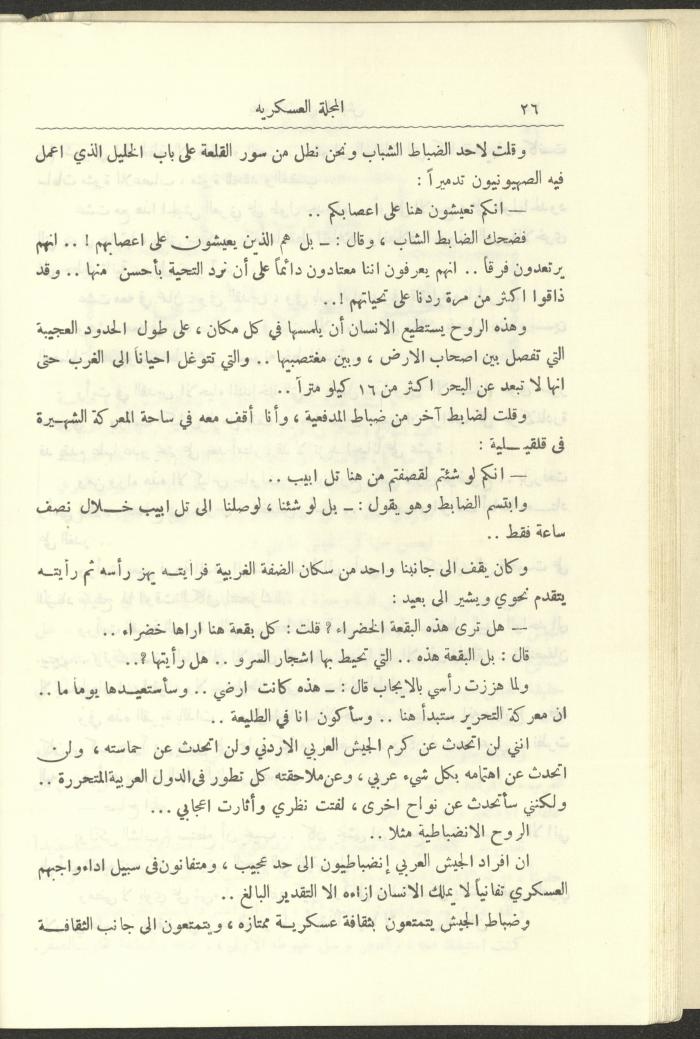 ٢٦
المجلة العسكريه
وقلت لاحد الضباط الشباب ونحن نطل من سور القلعة على باب الخليل الذي اعمل
فيه الصهيونيون تدميراً :
— انكم تعيشون هنا على اعصابكم ..
فضحك الضابط الشاب ، وقال : ـ بل هم الذين يعيشون على اعصابهم ! .. انهم
يرتعدون فرقاً .. انهم يعرفون اننا معتادون دائماً على أن نرد التحية بأحسن منها .. وقد
ذاقوا اكثر من مرة ردنا على تحياتهم !..
وهذه الروح يستطيع الانسان أن يلمسها في كل مكان ، على طول الحدود العجيبة
التي تفصل بين اصحاب الارض ، وبين مغتصبيها .. والتي تتوغل احياناً الى الغرب حتى
انها لا تبعد عن البحر اكثر من ١٦ كيلو متراً ..
وقلت لضابط آخر من ضباط المدفعية ، وأنا أقف معه في ساحة المعركة الشهيرة
فى قلقيـلية :
— انكم لو شئتم لقصفتم من هنا تل ابيب ..
وابتسم الضابط وهو يقول : ـ بل لو شئنا ، لوصلنا الى تل ابيب خـلال نصف
ساعة فقط ..
وكان يقف الى جانبنا واحد من سكان الضفة الغربية فرأيته يهز رأسه ثم رأيته
يتقدم نحوي ويشير الى بعيد :
— هل ترى هذه البقعة الخضراء ؟ قلت : كل بقعة هنا اراها خضراء ..
قال : بل البقعة هذه .. التي تحيط بها اشجار السرو .. هل رأيتها ؟..
ولما هززت رأسي بالايجاب قال : ـ هذه كانت ارضي .. وسأستعيـدها يوماً ما ..
ان معركة التحرير ستبدأ هنا .. وسأكون انا في الطليعة ..
انني لن اتحدث عن كرم الجيش العربي الاردني ولن اتحدث عن حماسته ، ولن
اتحدث عن اهتمامه بكل شيء عربي ، وعن ملاحقته كل تطور فى الدول العربية المتحررة ..
ولكنني سأتحدث عن نواح اخرى ، لفتت نظري وأثارت اعجابي ...
الروح الانضباطية مثلا ..
ان افراد الجيش العربي إنضباطيون الى حد عجيب ، ومتفانون فى سبيل اداء واجبهم
العسكري تفانياً لا يملك الانسان ازاءه الا التقدير البالغ ..
وضباط الجيش يتمتعون بثقافة عسكريـة ممتازه ، ويتمتعون الى جانب الثقافـة